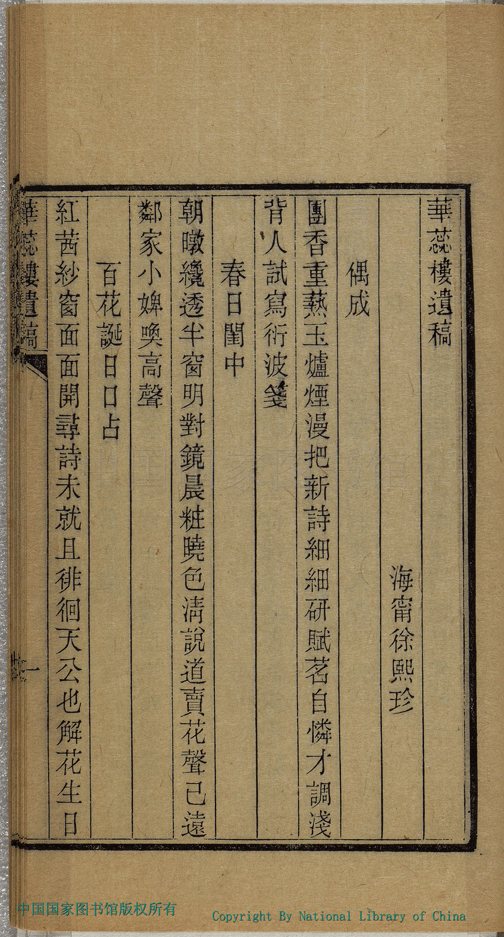 華蕊樓遺稿
海甯徐熙珍
偶成
團香重爇玉爐煙漫把新詩細細研賦茗自憐才調淺
背人試寫衍波箋
春日閨中
朝暾纔透半窗明對鏡晨粧曉色淸說道賣花聲已遠
鄰家小婢喚高聲
百花誕日口占
紅茜紗窗面面開尋詩未就且徘徊天公也解花生日
華蕊樓遺稿
一
中国国家图书馆版权所有
Copyright By National Library of China